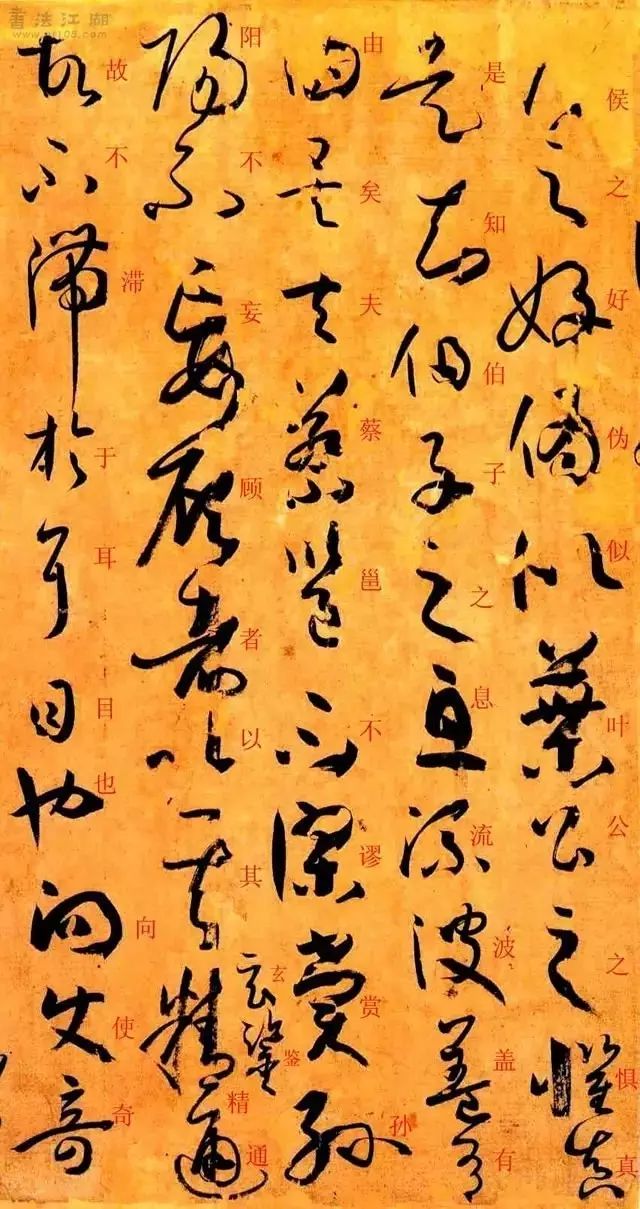 書法江湖
侯之好偽似葉公之懼真
侯之好伪似叶公之惧真
是知伯子之息流波蓋有
是知伯子之息流波盖有
由矣夫蔡邕不謬賞孫
由矣夫蔡邕不谬赏孙
陽不妄顧者以其玄鑒精通
阳不妄顾者以其玄鉴精通
故不滯於耳目也向使奇
故不滞于耳目也向使奇